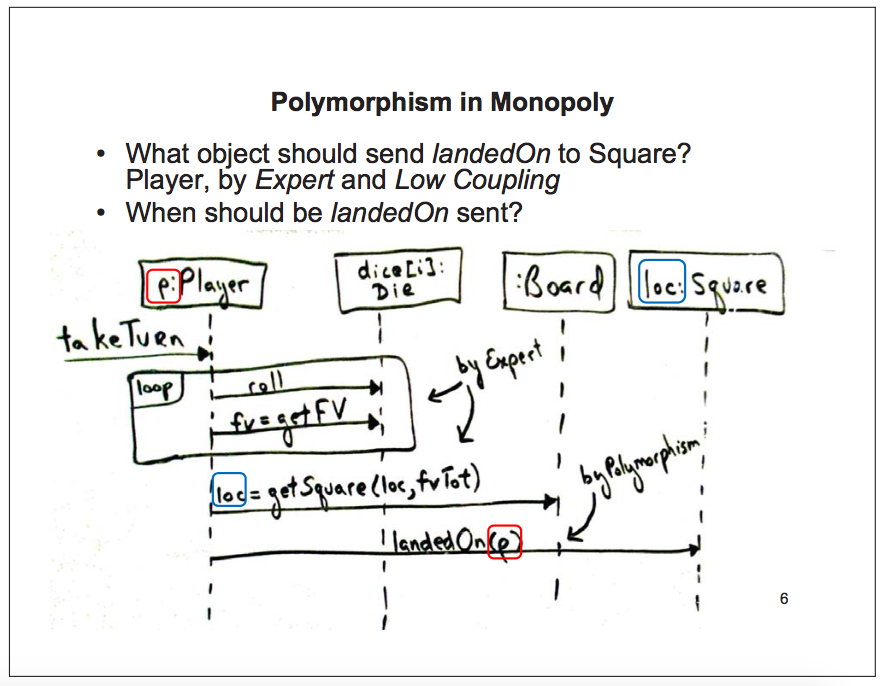 Polymorphism in Monopoly
• What object should send landedOn to Square?
Player, by Expert and Low Coupling
• When should be landedOn sent?
p:Player
dice[i]:
Die
:Board
loc: Square
takeTurn
by Expert
loop
roll
fv = getFV
by Polymorphism
loc = getSquare(loc, fvTot)
landedOn(p)
6